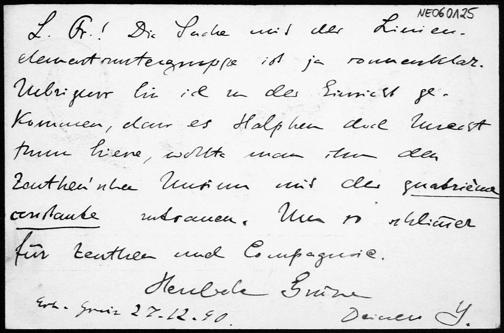 NE060125
L. Fr.! Die Sache mit der Linien-
elementuntergruppe ist ja sonnenklar.
Übrigens bin ich zu der Einsicht ge-
kommen, dass es Halphen doch Unrecht
tun hiesse, wollte man ihm den
Zeuthen'schen Unsinn mit der quatrième
constante zutrauen. Um so schlimmer
für Zeuthen und Compagnie.
Herzliche Grüsse
27.12.90. Deinen